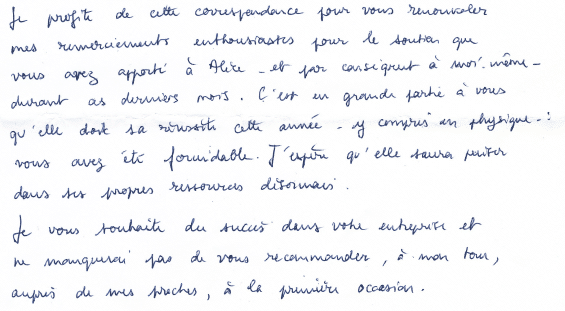 Je profite de cette correspondance pour vous renouveler
mes remerciements enthousiastes pour le soutien que
vous avez apporté à Alice - et par conséquent à moi-même -
durant ces derniers mois. C'est en grande partie à vous
qu'elle doit sa réussite cette année - y compris en physique - :
vous avez été formidable. J'espère qu'elle saura puiser
dans ses propres ressources désormais.
Je vous souhaite du succès dans votre entreprise et
ne manquerai pas de vous recommander, à mon tour,
auprès de mes proches, à la première occasion.